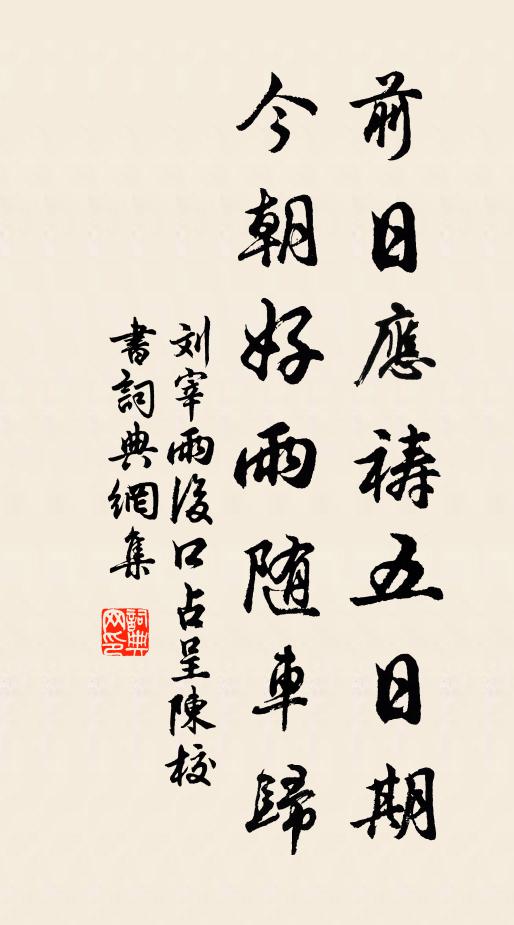 前日應祷五日期
今朝好雨随車歸
刘宰雨後口占呈陳校
書詞典網集
詞典网印